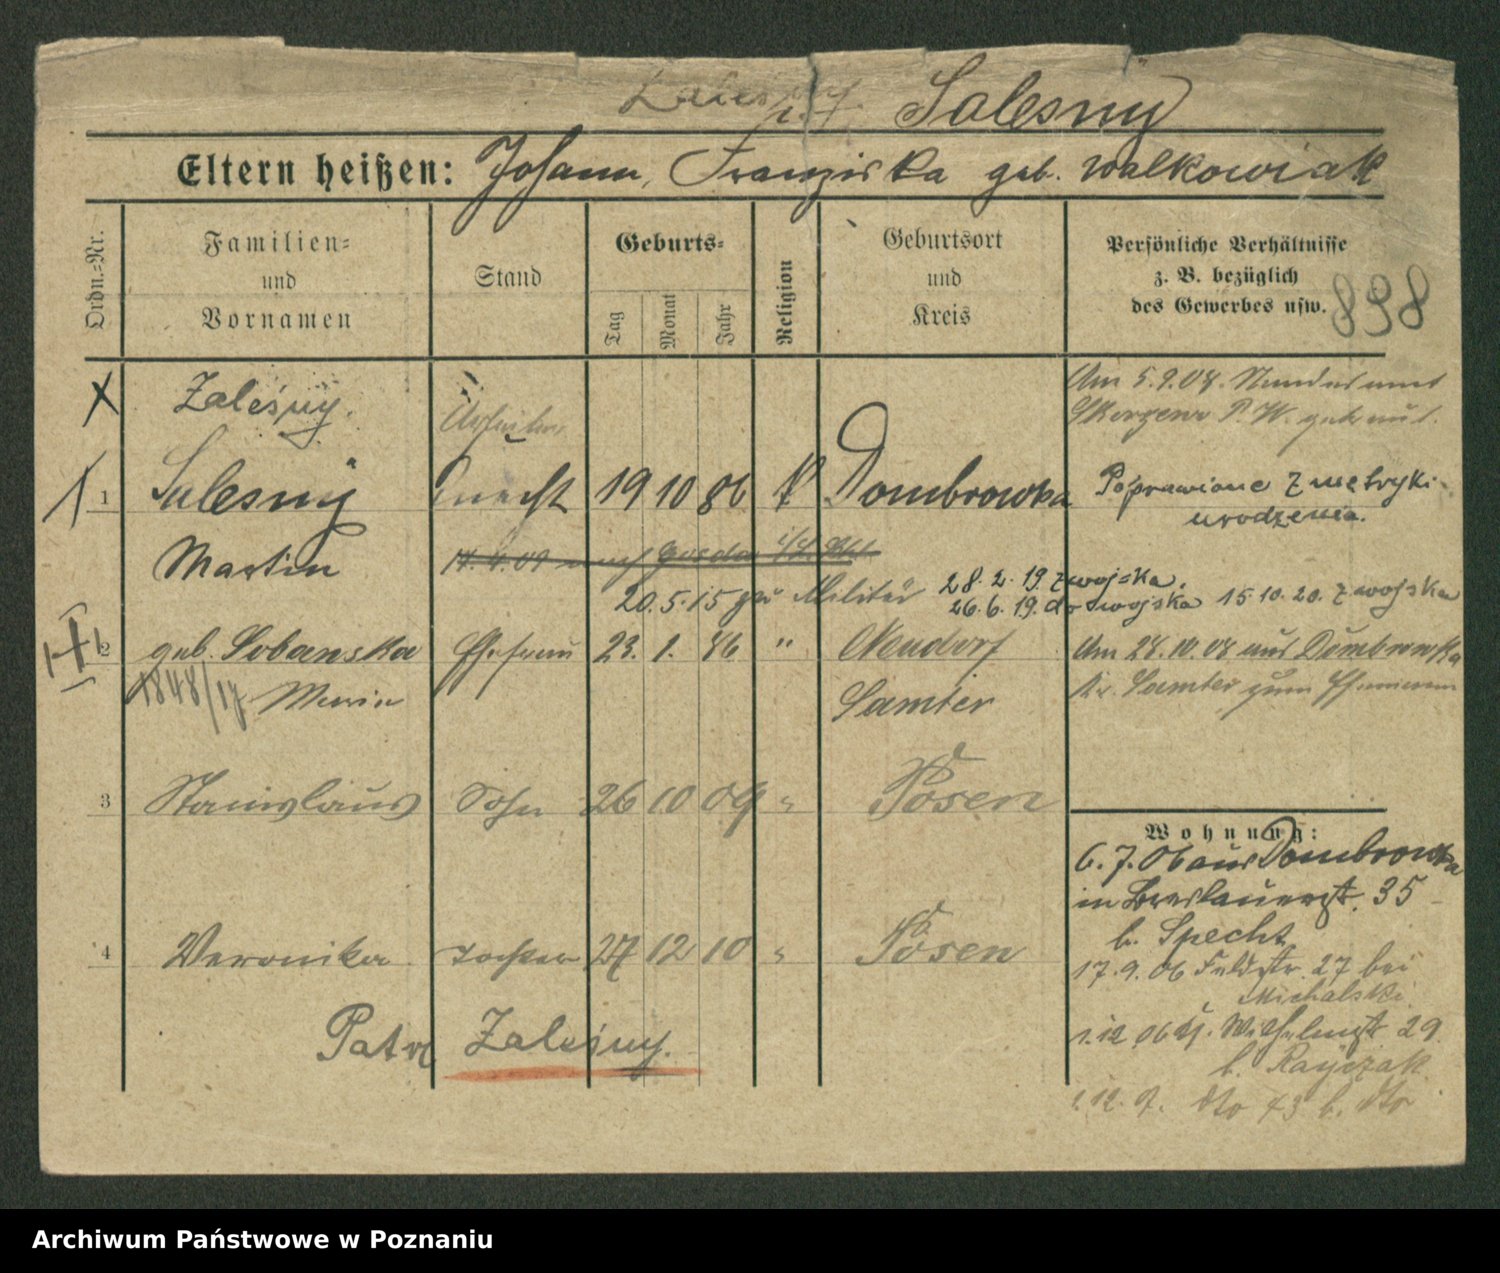 Zaleśny. Salesny
Eltern heißen: Johann, Franziska geb. Walkowiak
Ordn.=Nr.
Familien=
und
Vornamen
Stand
Geburts=
Tag
Monat
Jahr
Religion
Geburtsort
und
Kreis
Persönliche Verhältnisse
z. B. bezüglich
des Gewerbes usw.
898
Zaleśny.
Arbeiter
Am 5.9.08.
1 Salesny Knecht 19 10 86 k Dombrowka
Poprawione z metryki
urodzenia.
Martin
20.5.15 zu Militär 28.2.19. z wojska.
26.6.19. do wojska 15.10.20. z wojska
2 geb. Sobanska Ehefrau 23. 1. 86 " Neudorf
Am 28.10.08 aus Dombrowka
1848/17 Maria Samter
Kr. Samter zum
3 Stanislaus Sohn 26 10 09 " Posen
Wohnung:
6.7.06 aus Dombrowka
in Breslauerst. 35
b. Specht
4 Veronika Tochter 27 12 10 " Posen
17.9.06 Feldstr. 27 bei
Michalski
Patrz Zaleśny.
1.12.06 Wilhelmst. 29
b. Rayczak
1.12.07. dto 43 b. dto
Archiwum Państwowe w Poznaniu